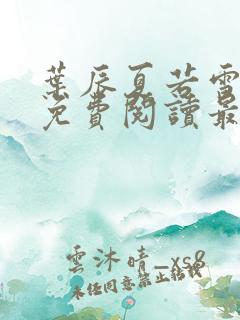 葉辰夏若雪
免費閱讀最
雲沐晴_xs8
未经同意禁止转载